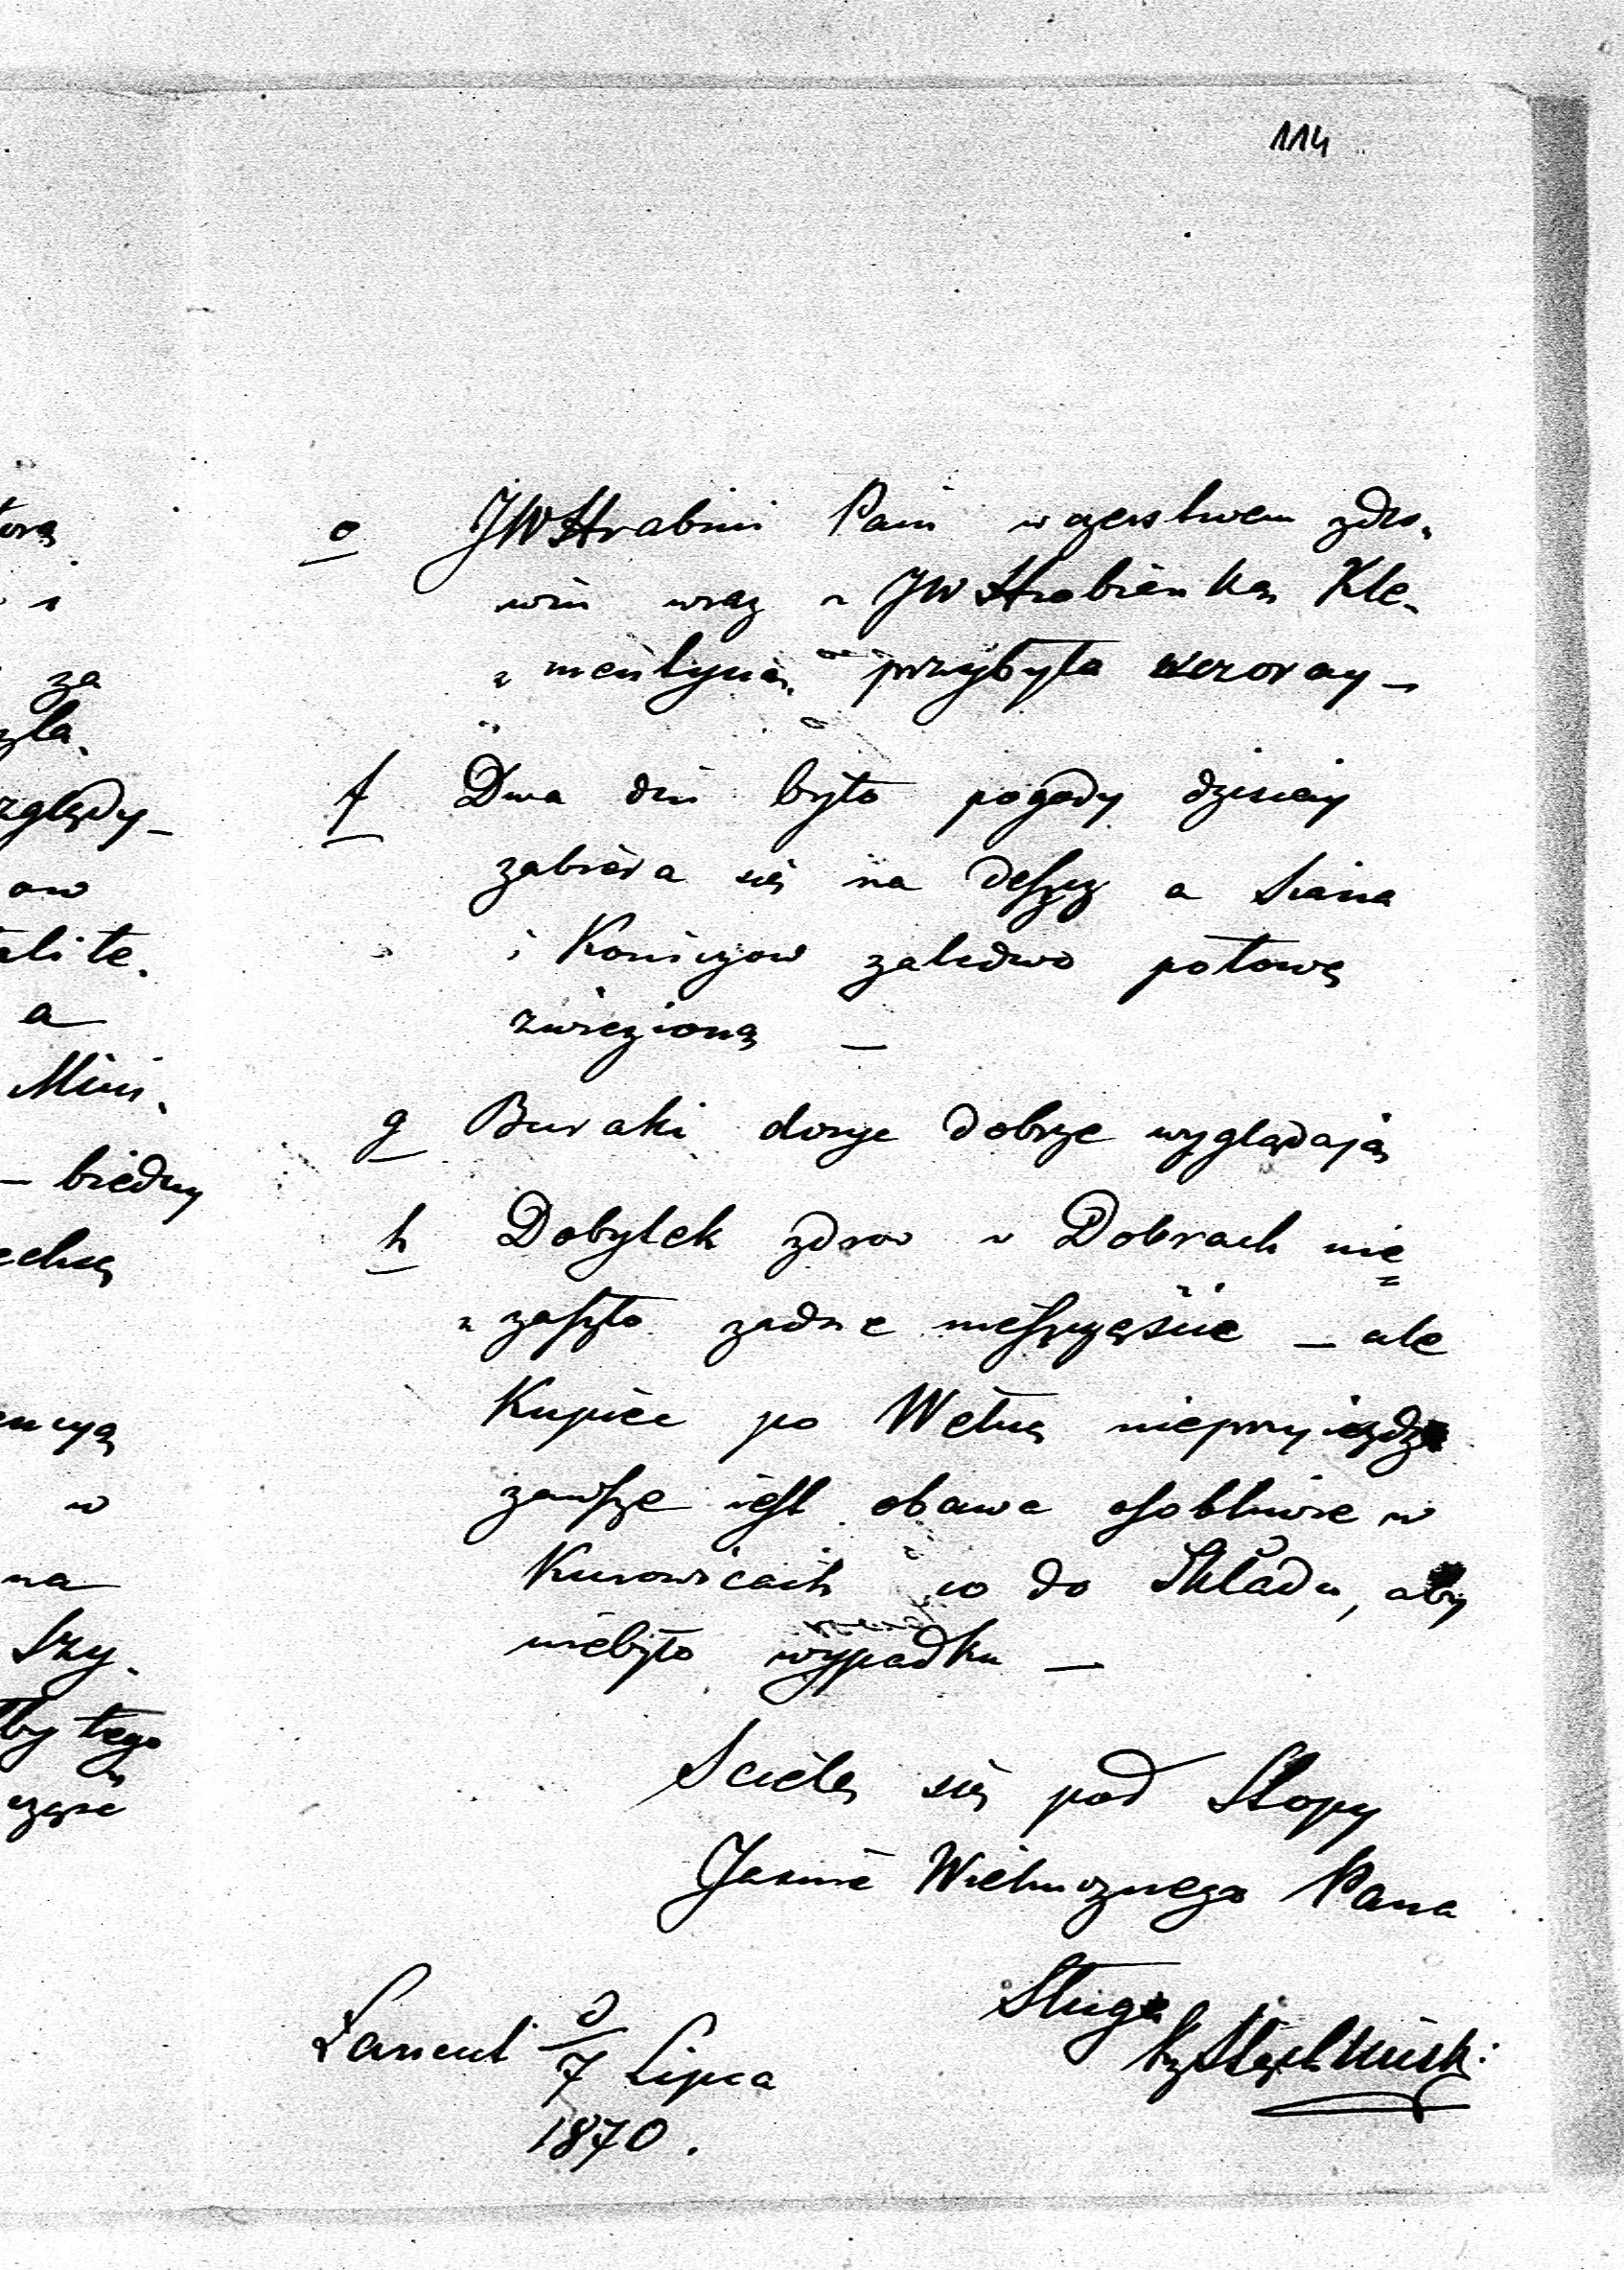 114
torą
i
za
zła.
względy –
ow
tali te.
a –
Mini.
– biedny
echą
encyą
w
na
Szy.
tby tego
częse
e JWHrabini Pani w czerstwem zdro„
wiu wraz z JWHrabianką Kle„
„mentyną przybyła wczoray –
f Dwa dni było pogody dzisiay
zabiéra się na deszcz a Siana
i Koniczow zaledwo połowę
zwieziono –
g Buraki dosyc dobrze wyglądają
h Dobytek zdrow w Dobrach nie
„zaszło zadne nieszczęście – ale
Kupiec po Wełnę nieprzyiezdza
zawsze iest obawa osobliwie w
Kurowicach co do Składu, aby
niebyło wypadku –
Sciélę się pod Stopy
Jasnie Wielmoznego Pana
Sługa
Łancut d/7 Lipca
1870.